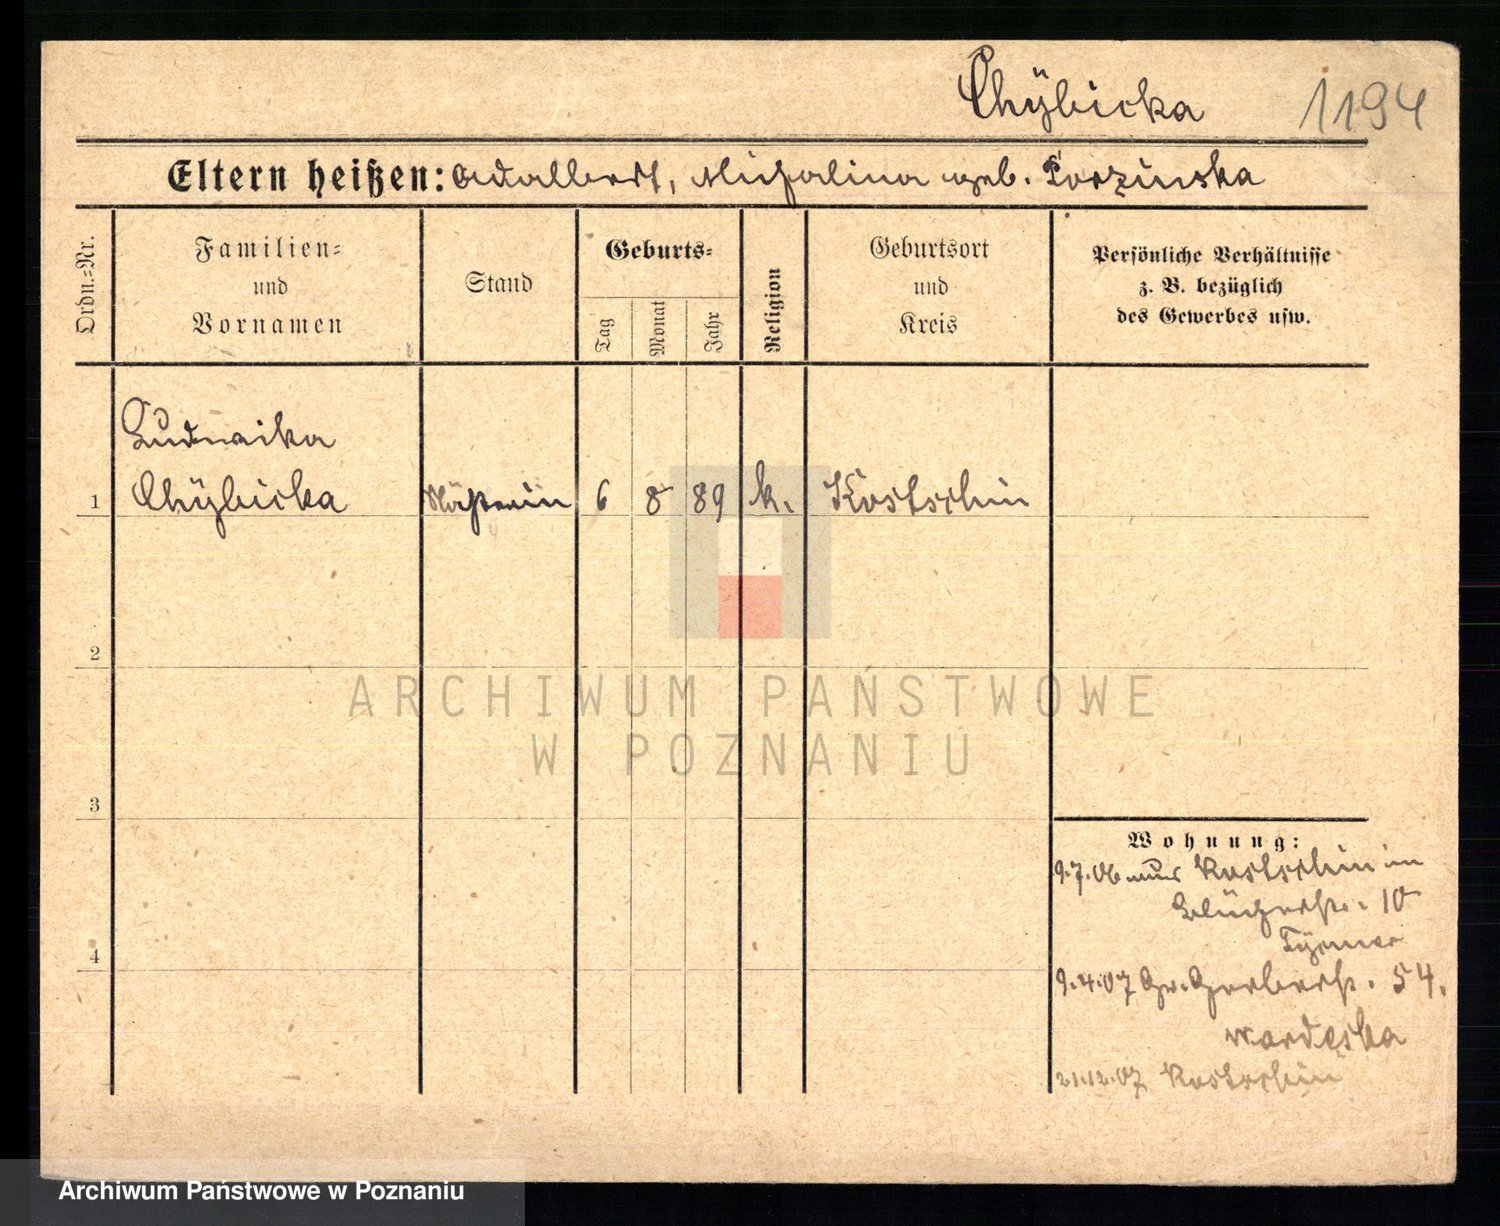 Chÿbicka 1194
Eltern heißen: Adalbert, Michalina geb. Porzinska
Ordn.=Nr.
Familien=
und
Vornamen
Stand
Geburts=
Tag
Monat
Jahr
Religion
Geburtsort
und
Kreis
Persönliche Verhältnisse
z. B. bezüglich
des Gewerbes usw.
Ludwika
1 Chÿbicka Näherin 6 8 89 k. Kostschin
2
ARCHIWUM PAŃSTWOWE
W POZNANIU
3
Wohnung:
9.7.06 aus Kostschin in
Blücherstr. 10
4
9.4.07 Gr. Gerberstr. 54.
21.12.07 Kostschin
Archiwum Państwowe w Poznaniu